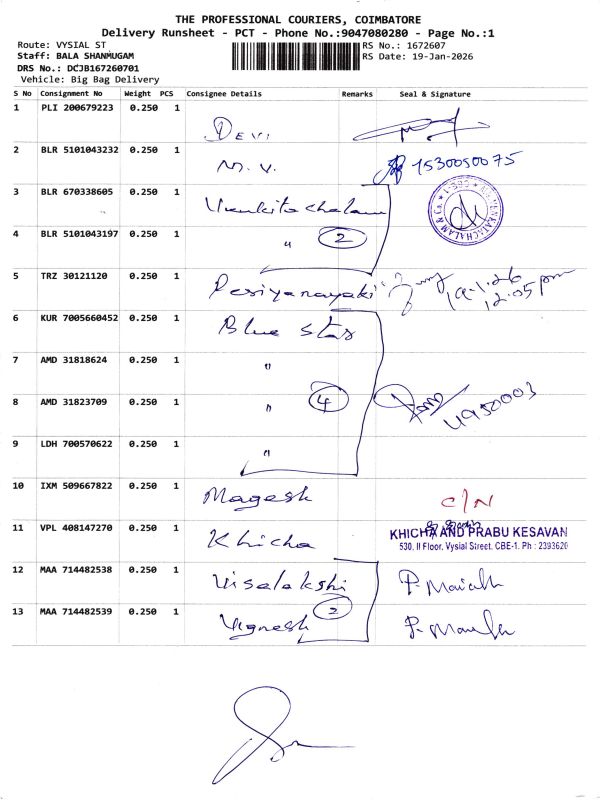 THE PROFESSIONAL COURIERS, COIMBATORE
Delivery Runsheet - PCT - Phone No.:9047080280 - Page No.:1
Route: VYSIAL ST
RS No.: 1672607
Staff: BALA SHANMUGAM
RS Date: 19-Jan-2026
DRS No.: DCJB167260701
Vehicle: Big Bag Delivery
S No Consignment No Weight PCS Consignee Details Remarks Seal & Signature
1 PLI 200679223 0.250 1 Devi
2 BLR 5101043232 0.250 1 M.V. 7530050075
3 BLR 670338605 0.250 1 Venkitachalam
4 BLR 5101043197 0.250 1 " 2
5 TRZ 30121120 0.250 1 Periyanayaki 19.1.26
12.05 pm
6 KUR 7005660452 0.250 1 Blue star
7 AMD 31818624 0.250 1 "
8 AMD 31823709 0.250 1 " 4 4950003
9 LDH 700570622 0.250 1 "
10 IXM 509667822 0.250 1 Magesh C/N
11 VPL 408147270 0.250 1 Khicha KHICHA AND PRABU KESAVAN
530, II Floor, Vysial Street, CBE-1. Ph : 2393620
12 MAA 714482538 0.250 1 Visalakshi
13 MAA 714482539 0.250 1 Vignesh 2